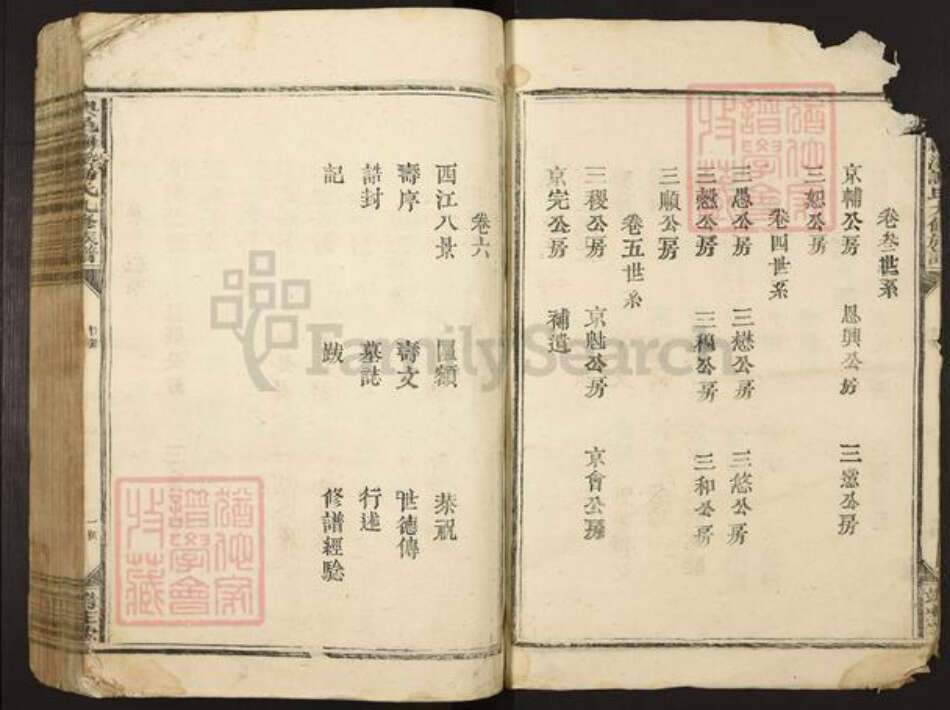 卷叁世系
京輔公房 恩興公房 三慫公房
三恕公房
卷四世系
三愚公房 三懋公房 三悠公房
三愻公房 三穆公房 三和公房
三順公房
卷五世系
三稷公房 京魁公房 京會公房
京完公房 補遺
卷六
西江八景 匾額 恭祝
壽序 壽文 世德傳
誥封 墓誌 行述
記 跋 修譜經驗
FamilySearch
猶他家譜學會收藏
猶他家譜學會收藏